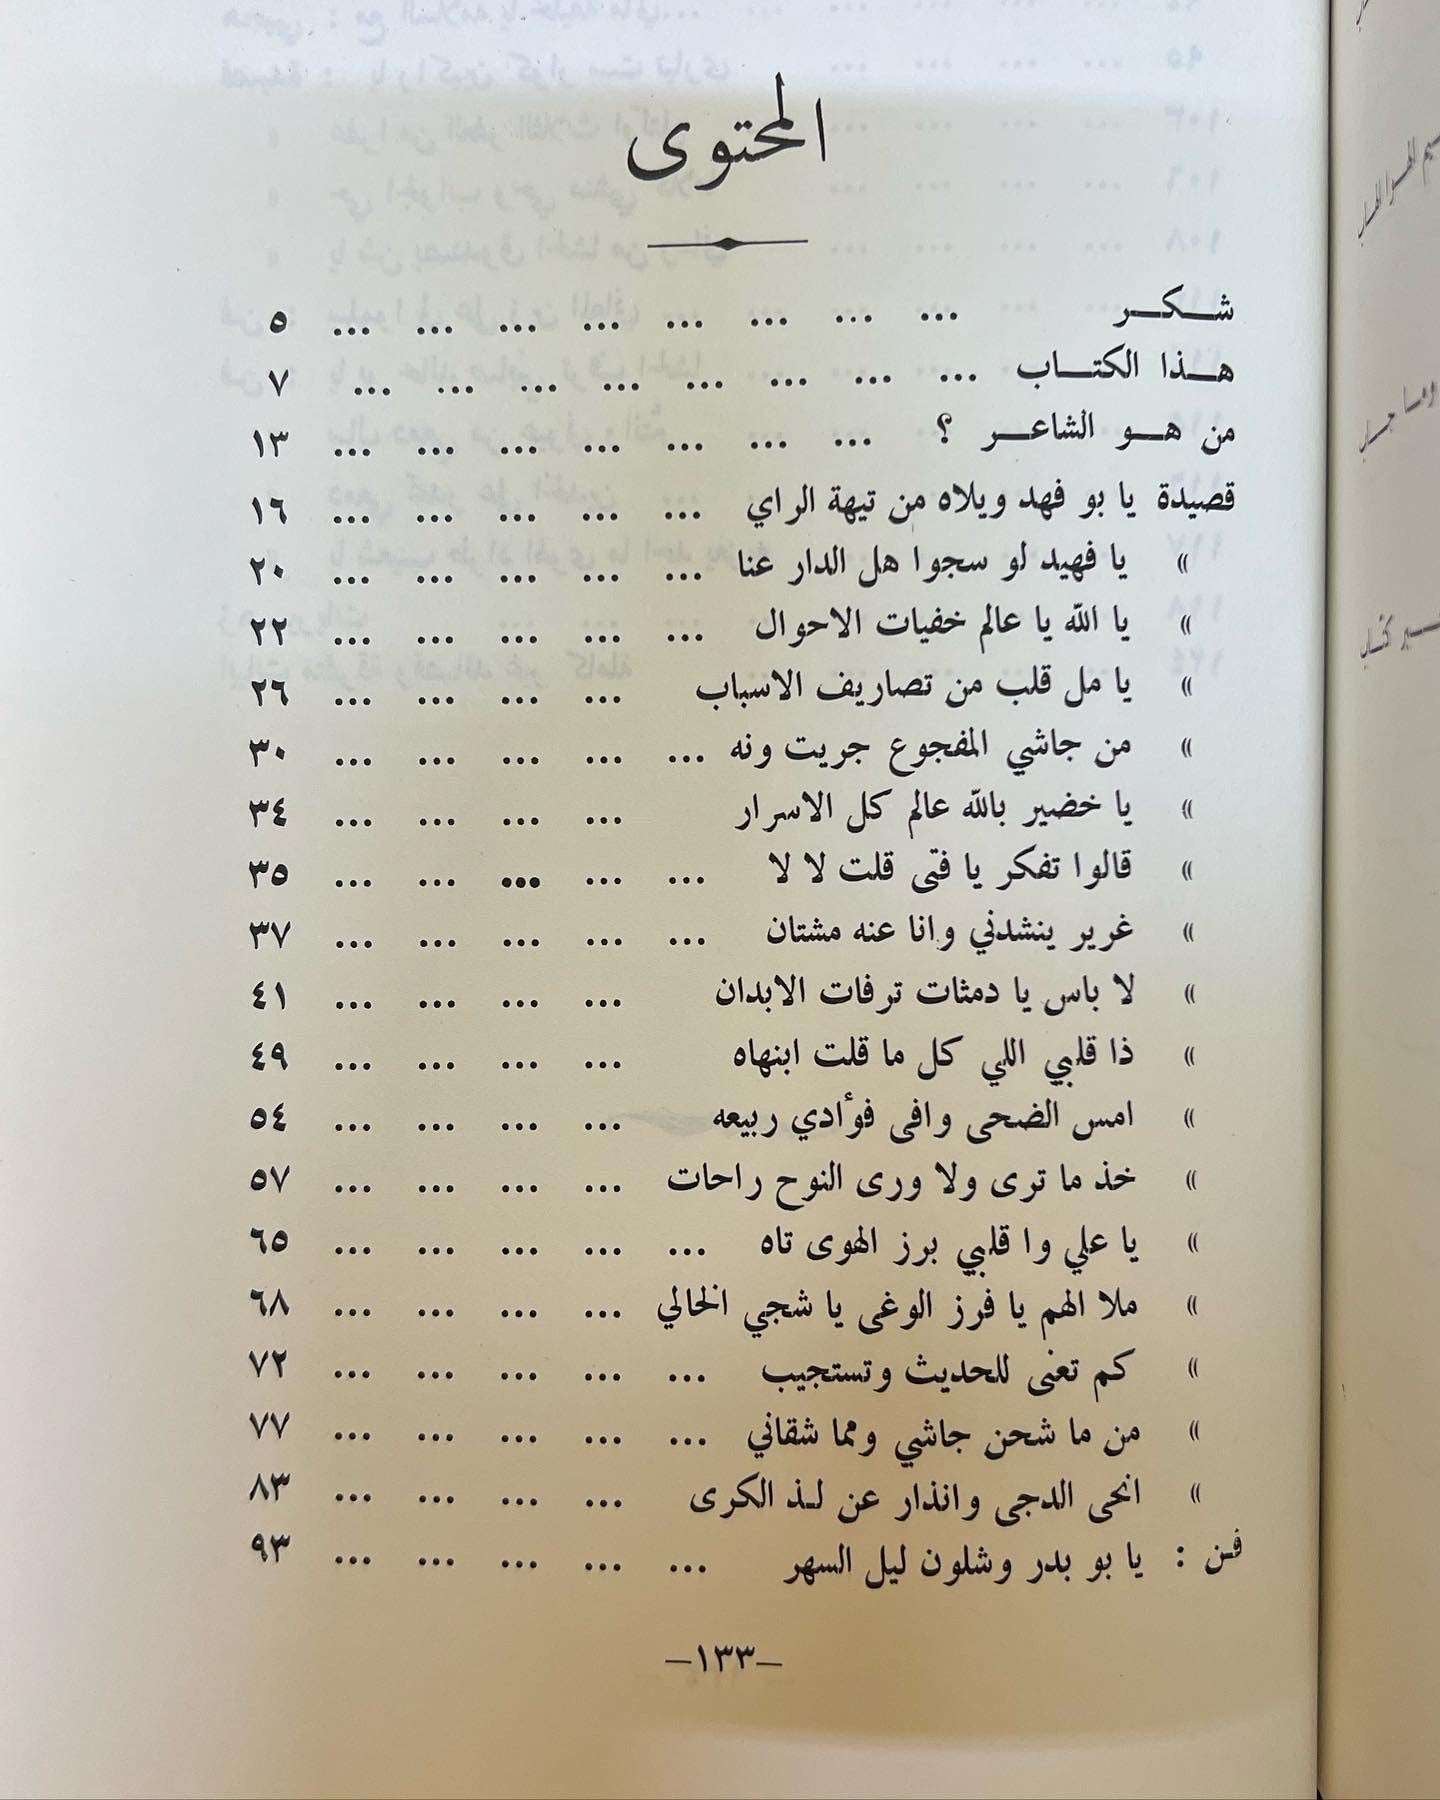 المحتوى
شكر ... ... ... ... ... ... ... ... ٥
هذا الكتاب ... ... ... ... ... ... ... ... ٧
من هو الشاعر ؟ ... ... ... ... ... ... ... ١٣
قصيدة يا بو فهد ويلاه من تيهة الراي ... ... ... ... ... ١٦
» يا فهيد لو سجوا هل الدار عنا ... ... ... ... ... ٢٠
» يا الله يا عالم خفيات الاحوال ... ... ... ... ... ٢٢
» يا مل قلب من تصاريف الاسباب ... ... ... ... ٢٦
» من جاشي المفجوع جريت ونه ... ... ... ... ... ٣٠
» يا خضير بالله عالم كل الاسرار ... ... ... ... ٣٤
» قالوا تفكر يا فتى قلت لا لا ... ... ... ... ... ٣٥
» غرير ينشدني وانا عنه مشتان ... ... ... ... ... ٣٧
» لا باس يا دمثات ترفات الابدان ... ... ... ... ٤١
» ذا قلبي اللي كل ما قلت ابنهاه ... ... ... ... ٤٩
» امس الضحى وافى فوأدي ربيعه ... ... ... ... ٥٤
» خذ ما ترى ولا ورى النوح راحات ... ... ... ... ٥٧
» يا علي وا قلبي برز الهوى تاه ... ... ... ... ... ٦٥
» ملا الهم يا فرز الوغى يا شجي الخالي ... ... ... ... ٦٨
» كم تعنى للحديث وتستجيب ... ... ... ... ... ٧٢
» من ما شحن جاشي ومما شقاني ... ... ... ... ... ٧٧
» انحى الدجى وانذار عن لذ الكرى ... ... ... ... ٨٣
فن : يا بو بدر وشلون ليل السهر ... ... ... ... ... ٩٣
—١٣٣—